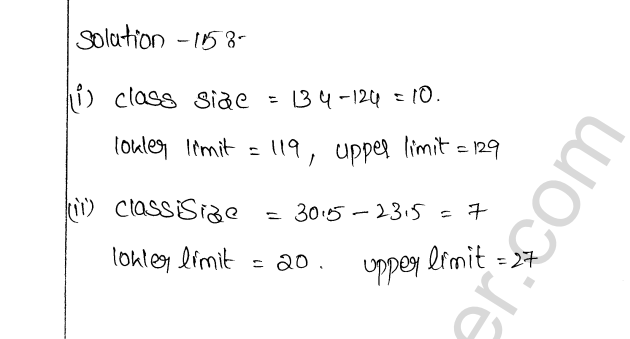 Solution - 15 :-
(i) class size = 134-124 = 10.
lower limit = 119, upper limit = 129
(ii) class size = 30.5 - 23.5 = 7
lower limit = 20. upper limit = 27
er.com